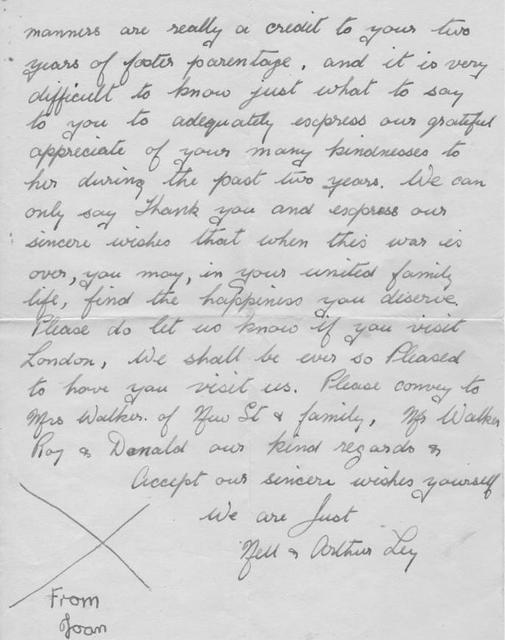 manners are really a credit to your two
years of foster parentage, and it is very
difficult to know just what to say
to you to adequately express our grateful
appreciate of your many kindnesses to
her during the past two years. We can
only say Thank you and express our
sincere wishes that when this war is
over, you may, in your united family
life, find the happiness you deserve.
Please do let us know if you visit
London, We shall be ever so Pleased
to have you visit us. Please convey to
Mrs Walker. of New St & family, Mr Walker
Roy & Donald our kind regards &
Accept our sincere wishes yourself
We are Just
Nell & Arthur Ley
From
Joan